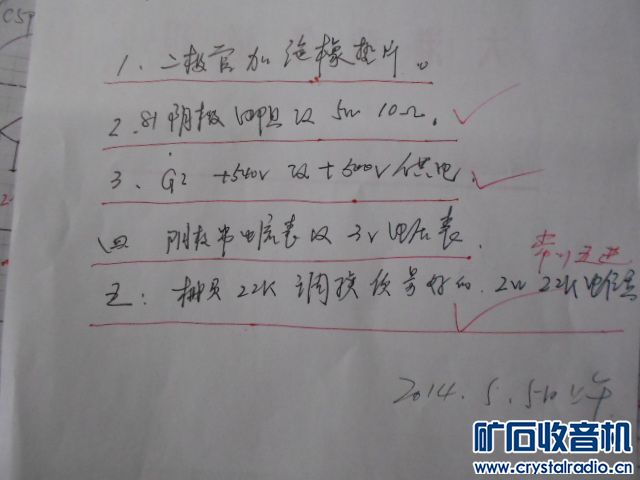 C5
1、二极管加绝橡垫片。
2.81阴极电阻改 5W 10Ω。
3、G2 +540V 改 +500V 供电.
四 阴极串电流表改 3V 电压表.
五: 栅负 22K 调换 好的. 2W 22K 电位器
2014.5.5 上午
矿石收音机
www.crystalradio.cn